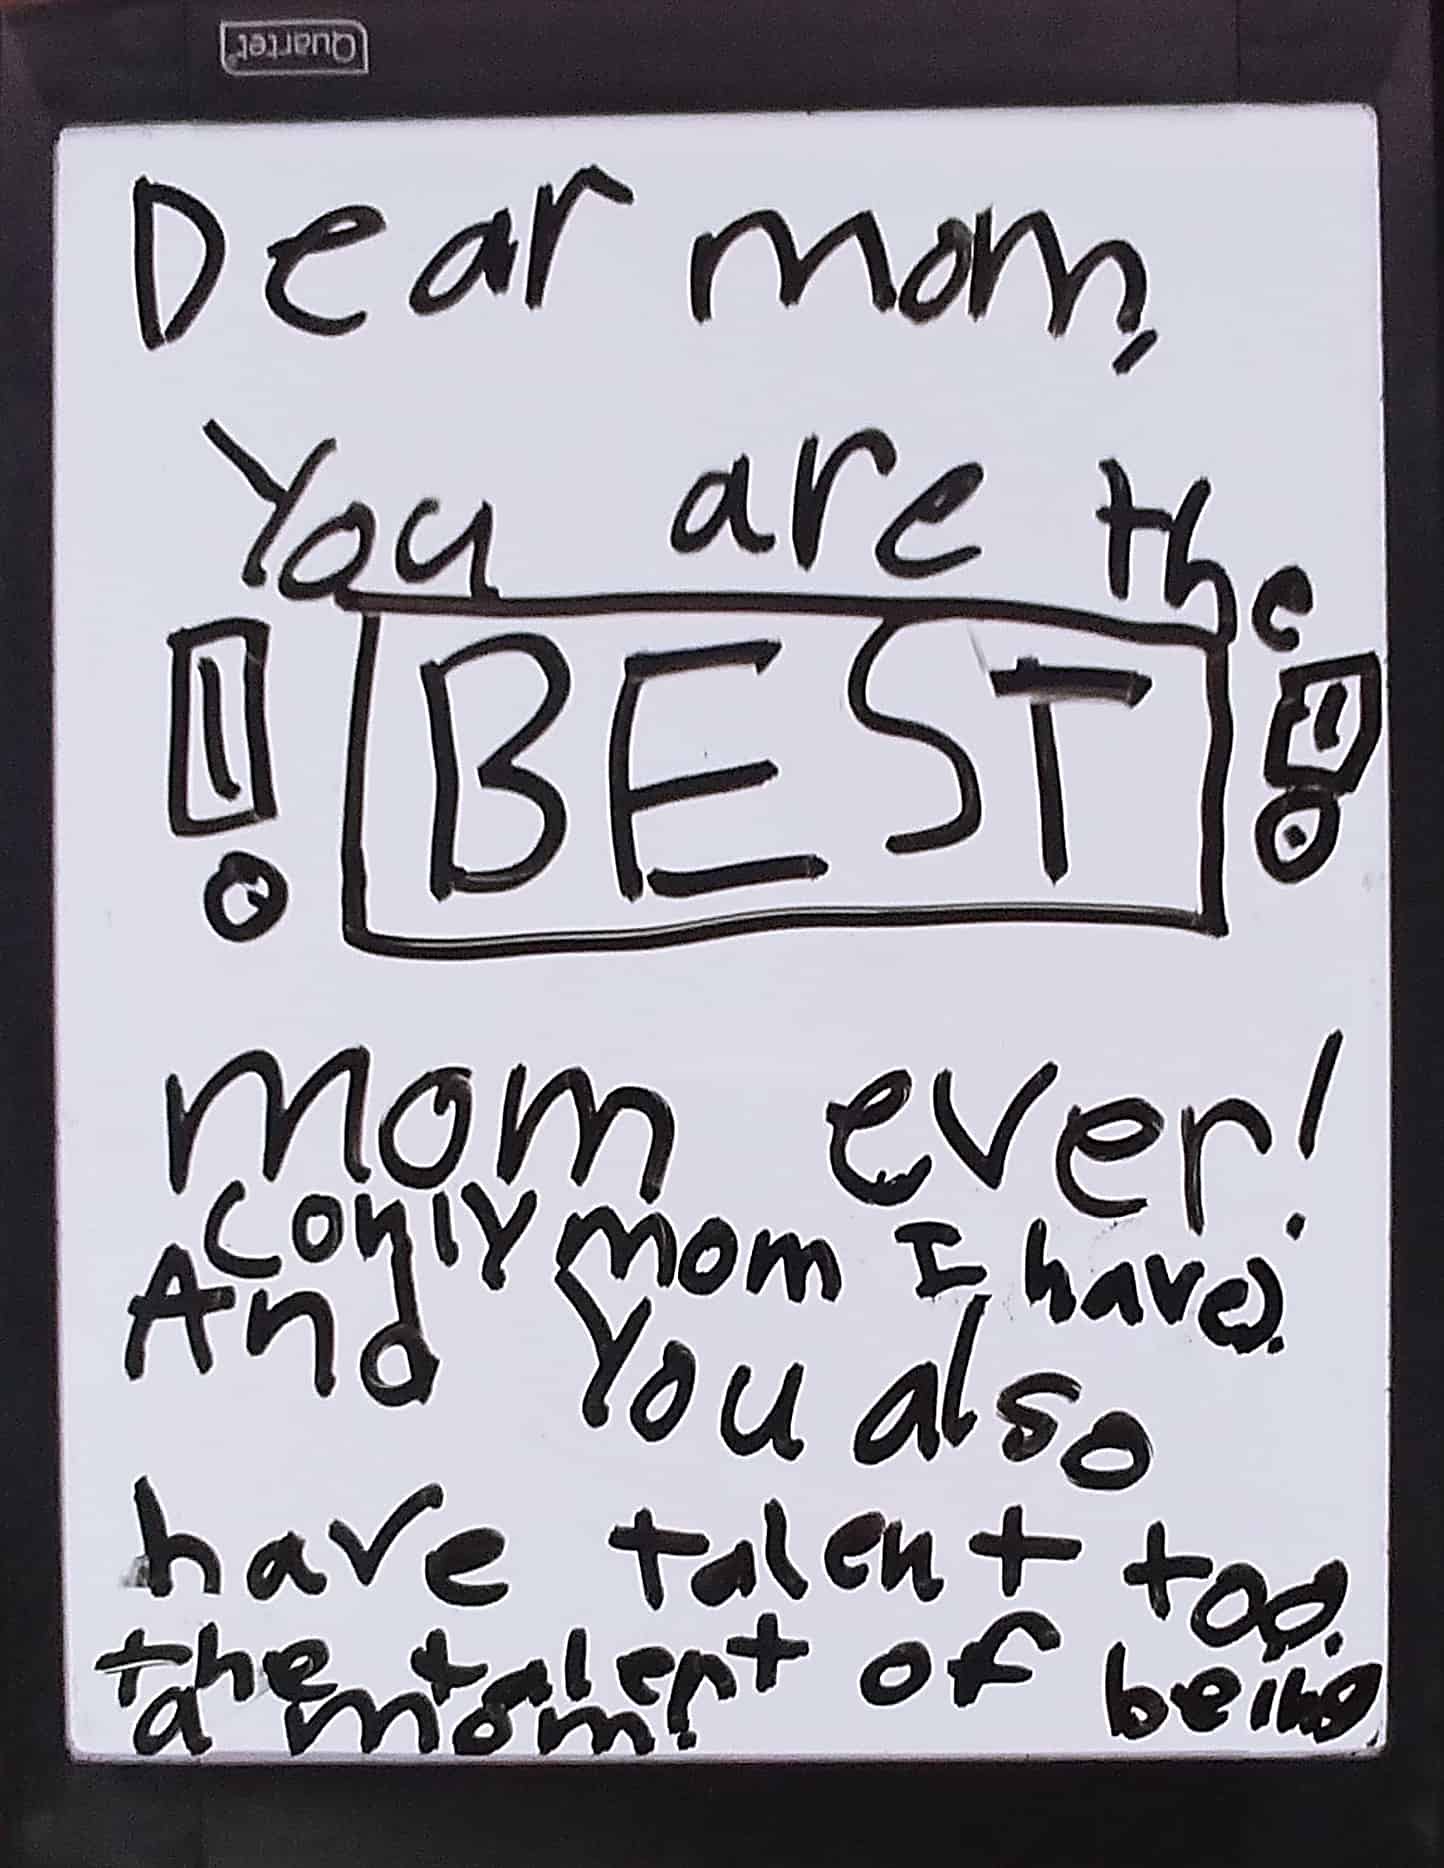 Quartet
Dear mom,
You are the
! BEST !
mom ever!
(only mom I have).
And You also
have talent too.
the talent of being
a mom!